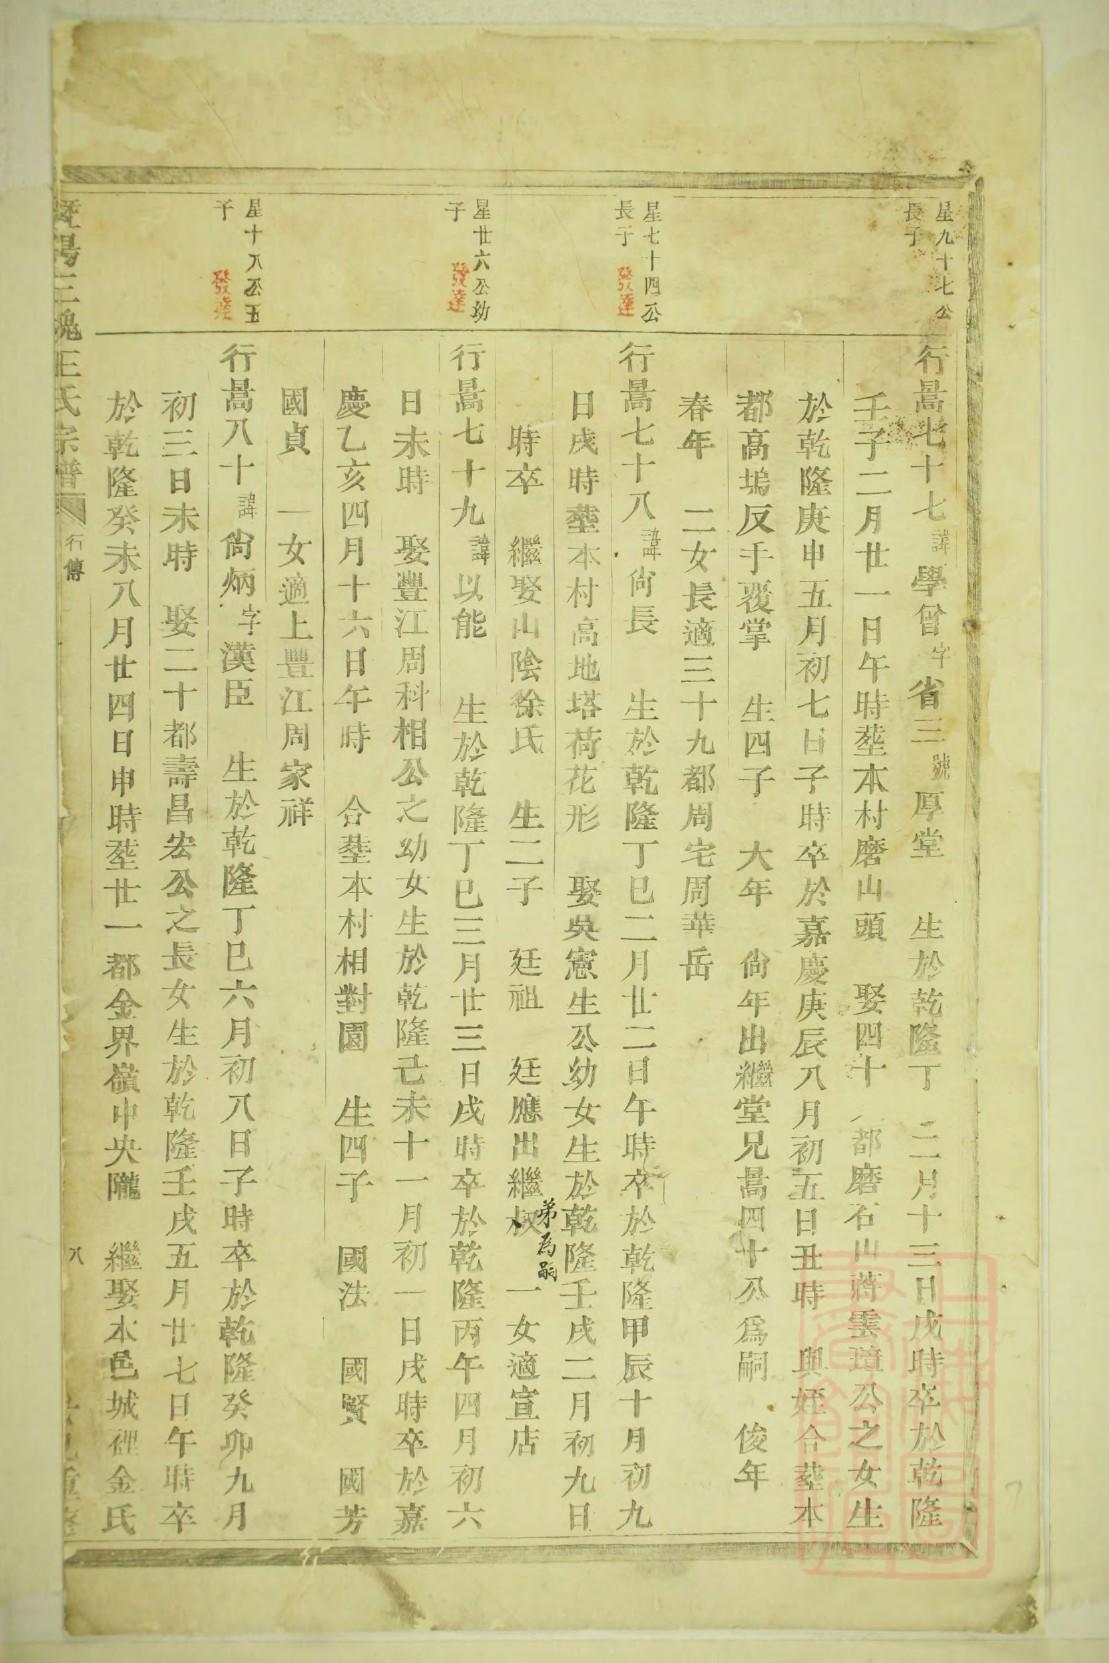 星九十七公
長子
行暠七十七諱學曾字省三號厚堂 生於乾隆丁 二月十三日戌時卒於乾隆
壬子二月廿一日午時塟本村磨山頭 娶四十 都磨石山蔣雲璋公之女生
於乾隆庚申五月初七日子時卒於嘉慶庚辰八月初五日丑時 與姪合塟本
都高塢反手覆掌 生四子 大年 尙年出繼堂兄暠四十公爲嗣 俊年
春年 二女長適三十九都周宅周華岳
星七十四公
長子 發達
行暠七十八諱尙長 生於乾隆丁巳二月廿二日午時卒於乾隆甲辰十月初九
日戌時塟本村高地塔荷花形 娶吳憲生公幼女生於乾隆壬戌二月初九日
時卒 繼娶山陰徐氏 生二子 廷祖 廷應出繼叔弟為嗣 一女適宣店
星廿六公幼
子 發達
行暠七十九諱以能 生於乾隆丁巳三月廿三日戌時卒於乾隆丙午四月初六
日未時 娶豐江周科相公之幼女生於乾隆己未十一月初一日戌時卒於嘉
慶乙亥四月十六日午時 合塟本村相對園 生四子 國法 國賢 國芳
國貞 一女適上豐江周家祥
星十八公五
子 發達
行暠八十諱尙炳字漢臣 生於乾隆丁巳六月初八日子時卒於乾隆癸卯九月
初三日未時 娶二十都壽昌宏公之長女生於乾隆壬戌五月廿七日午時卒
於乾隆癸未八月廿四日申時塟廿一都金界嶺中央隴 繼娶本邑城裡金氏
暨陽三槐王氏宗譜 行傳 八